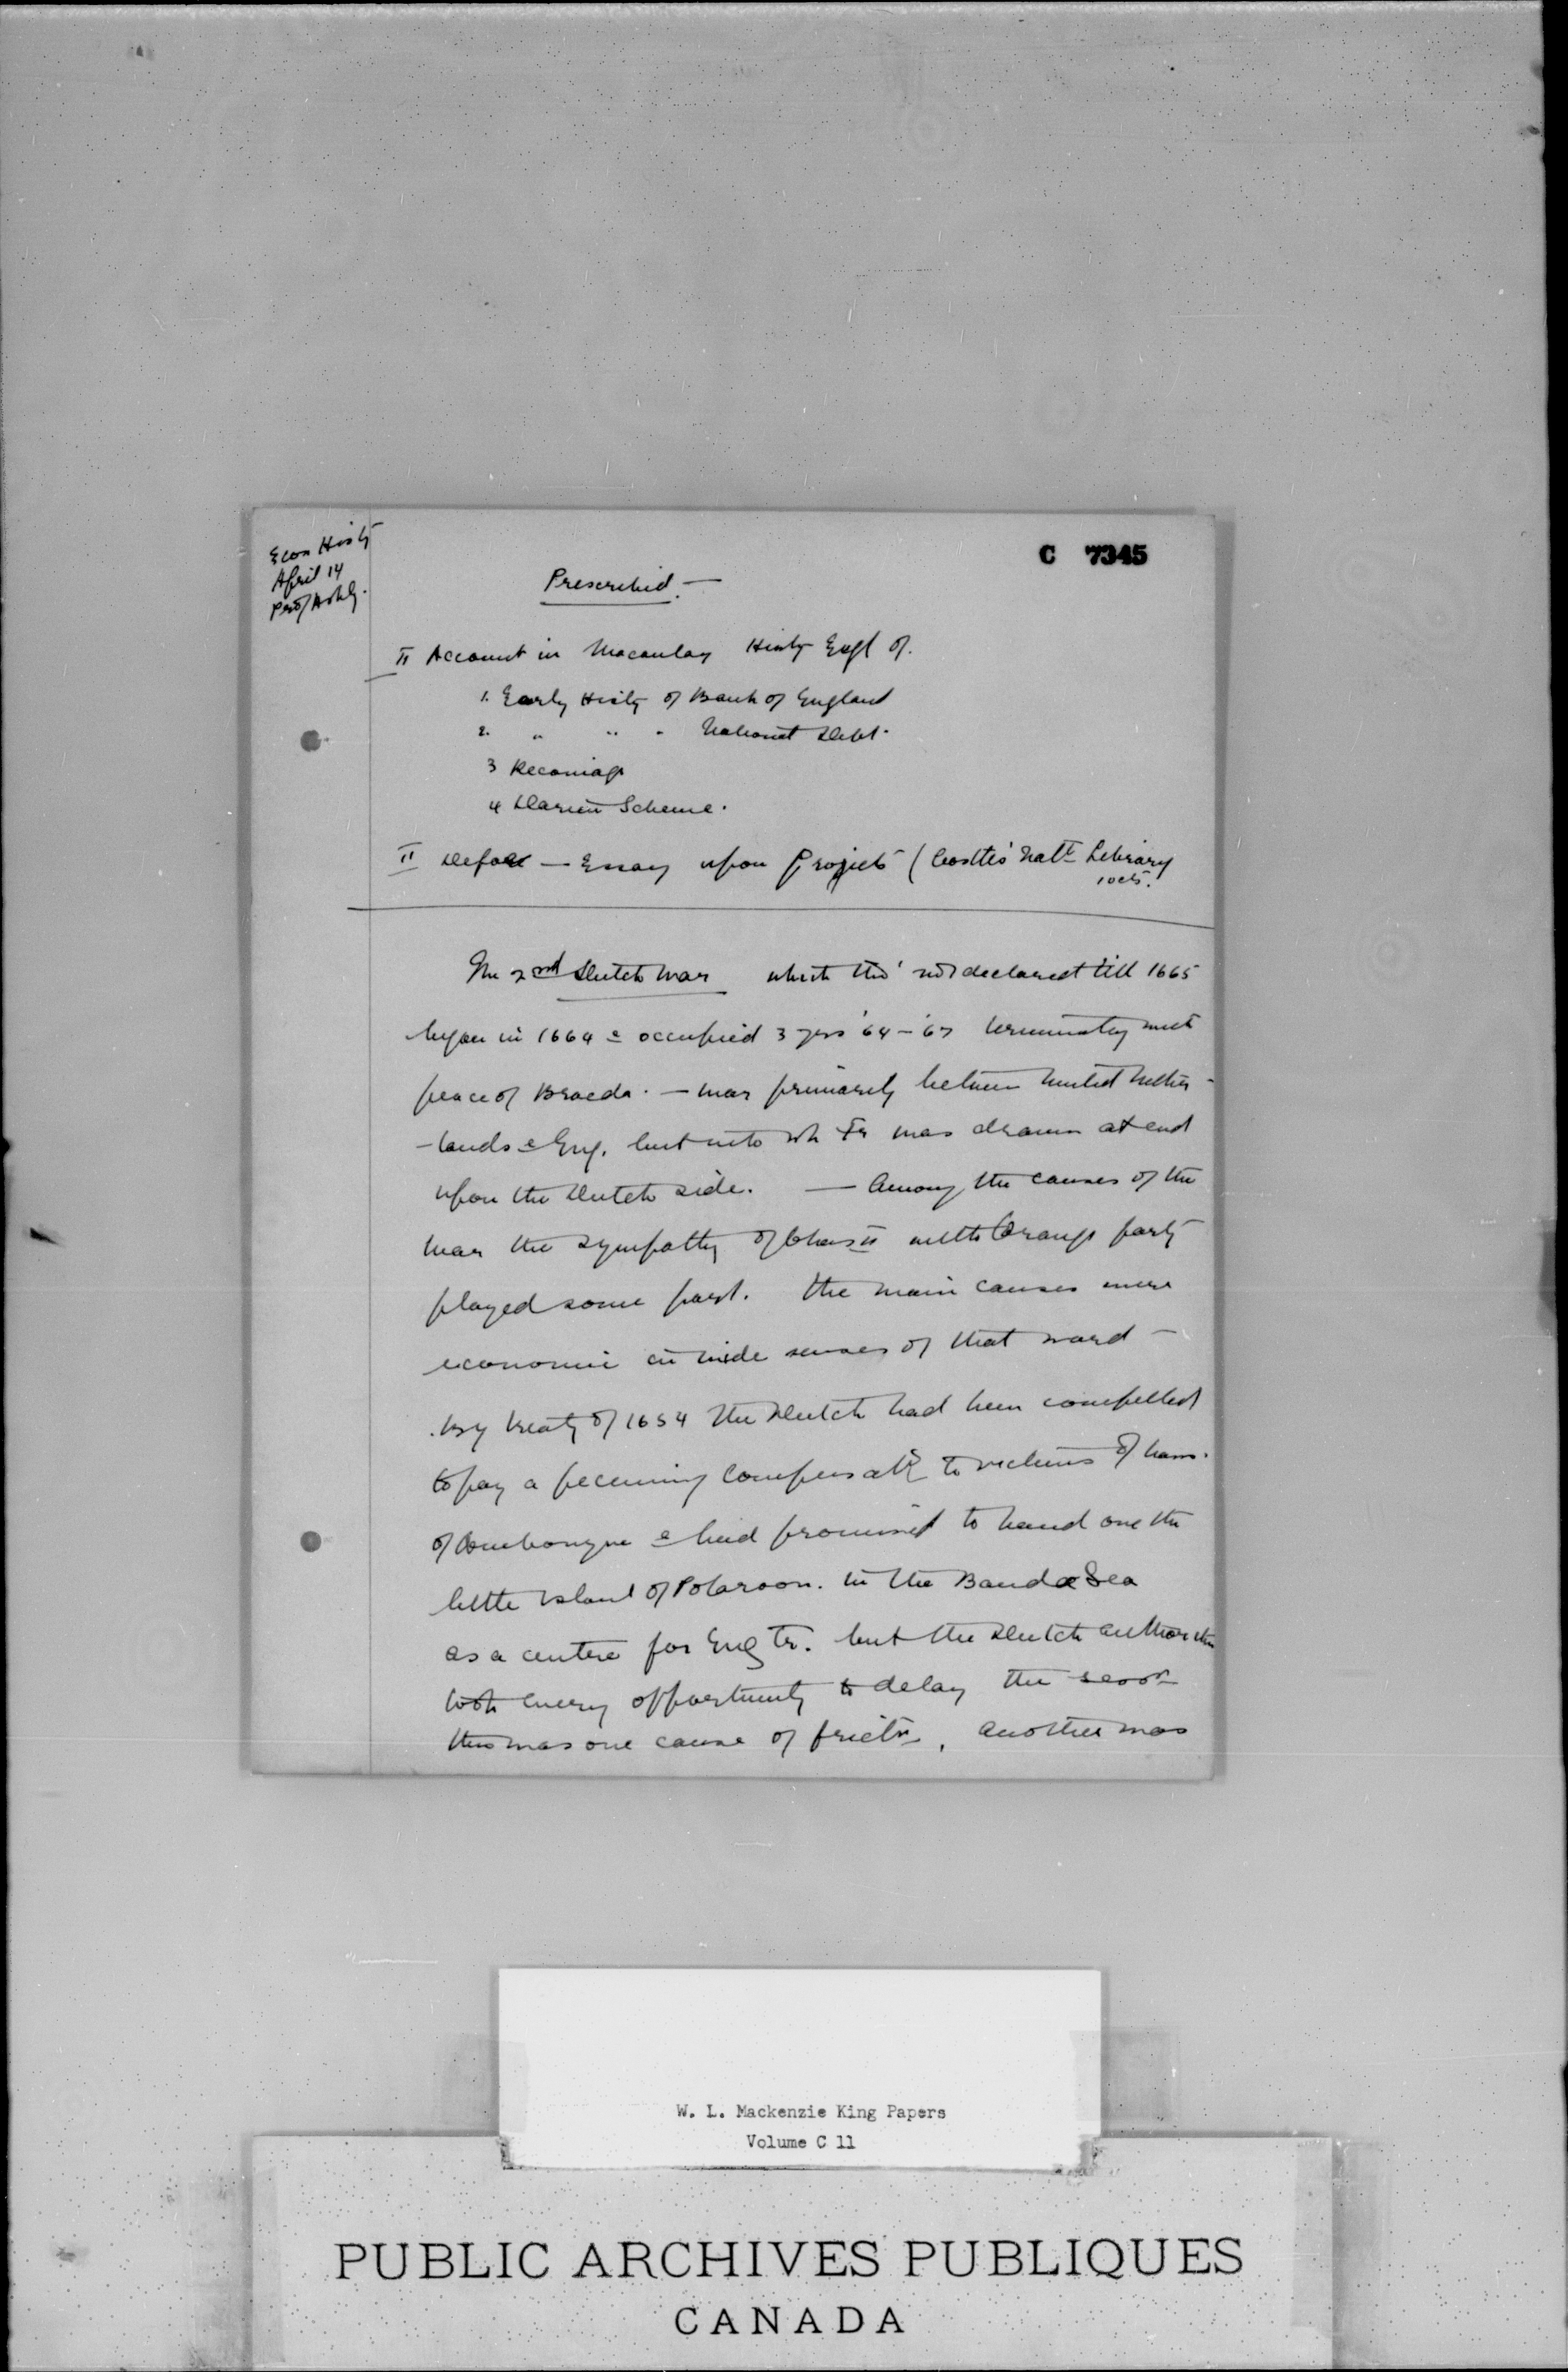 Econ Histy
April 14
Prof Ashly.
C 7345
Prescribed. —
II Account in Macaulay Histy Engl of.
1. Early Histy of Bank of England
2. " " " National Debt.
3 Recoinage
4 Darien Scheme.
II Defoe — Essay upon Projects (Castles Natl Library
10cts.
The 2nd Dutch War which tho' not declared till 1665
began in 1664 & occupied 3 yrs '64-'67 terminatg with
peace of Braeda. — war primarily between United Nether-
-lands & Eng. but into wh Fr was drawn at end
upon the Dutch side. — Among the causes of the
war the sympathy of Chas II with Orange party
played some part. The main causes were
economic in wide senses of that word —
By treaty of 1654 the Dutch had been compelled
to pay a pecuniary compensatn to victims of
of Amboyna & had promised to hand over the
little Island of Polaroon. in the Banda Sea
as a centre for Eng tr. but the Dutch authorities
took every opportunity to delay the
this was one cause of frictn, another was
W. L. Mackenzie King Papers
Volume C 11
PUBLIC ARCHIVES PUBLIQUES
CANADA